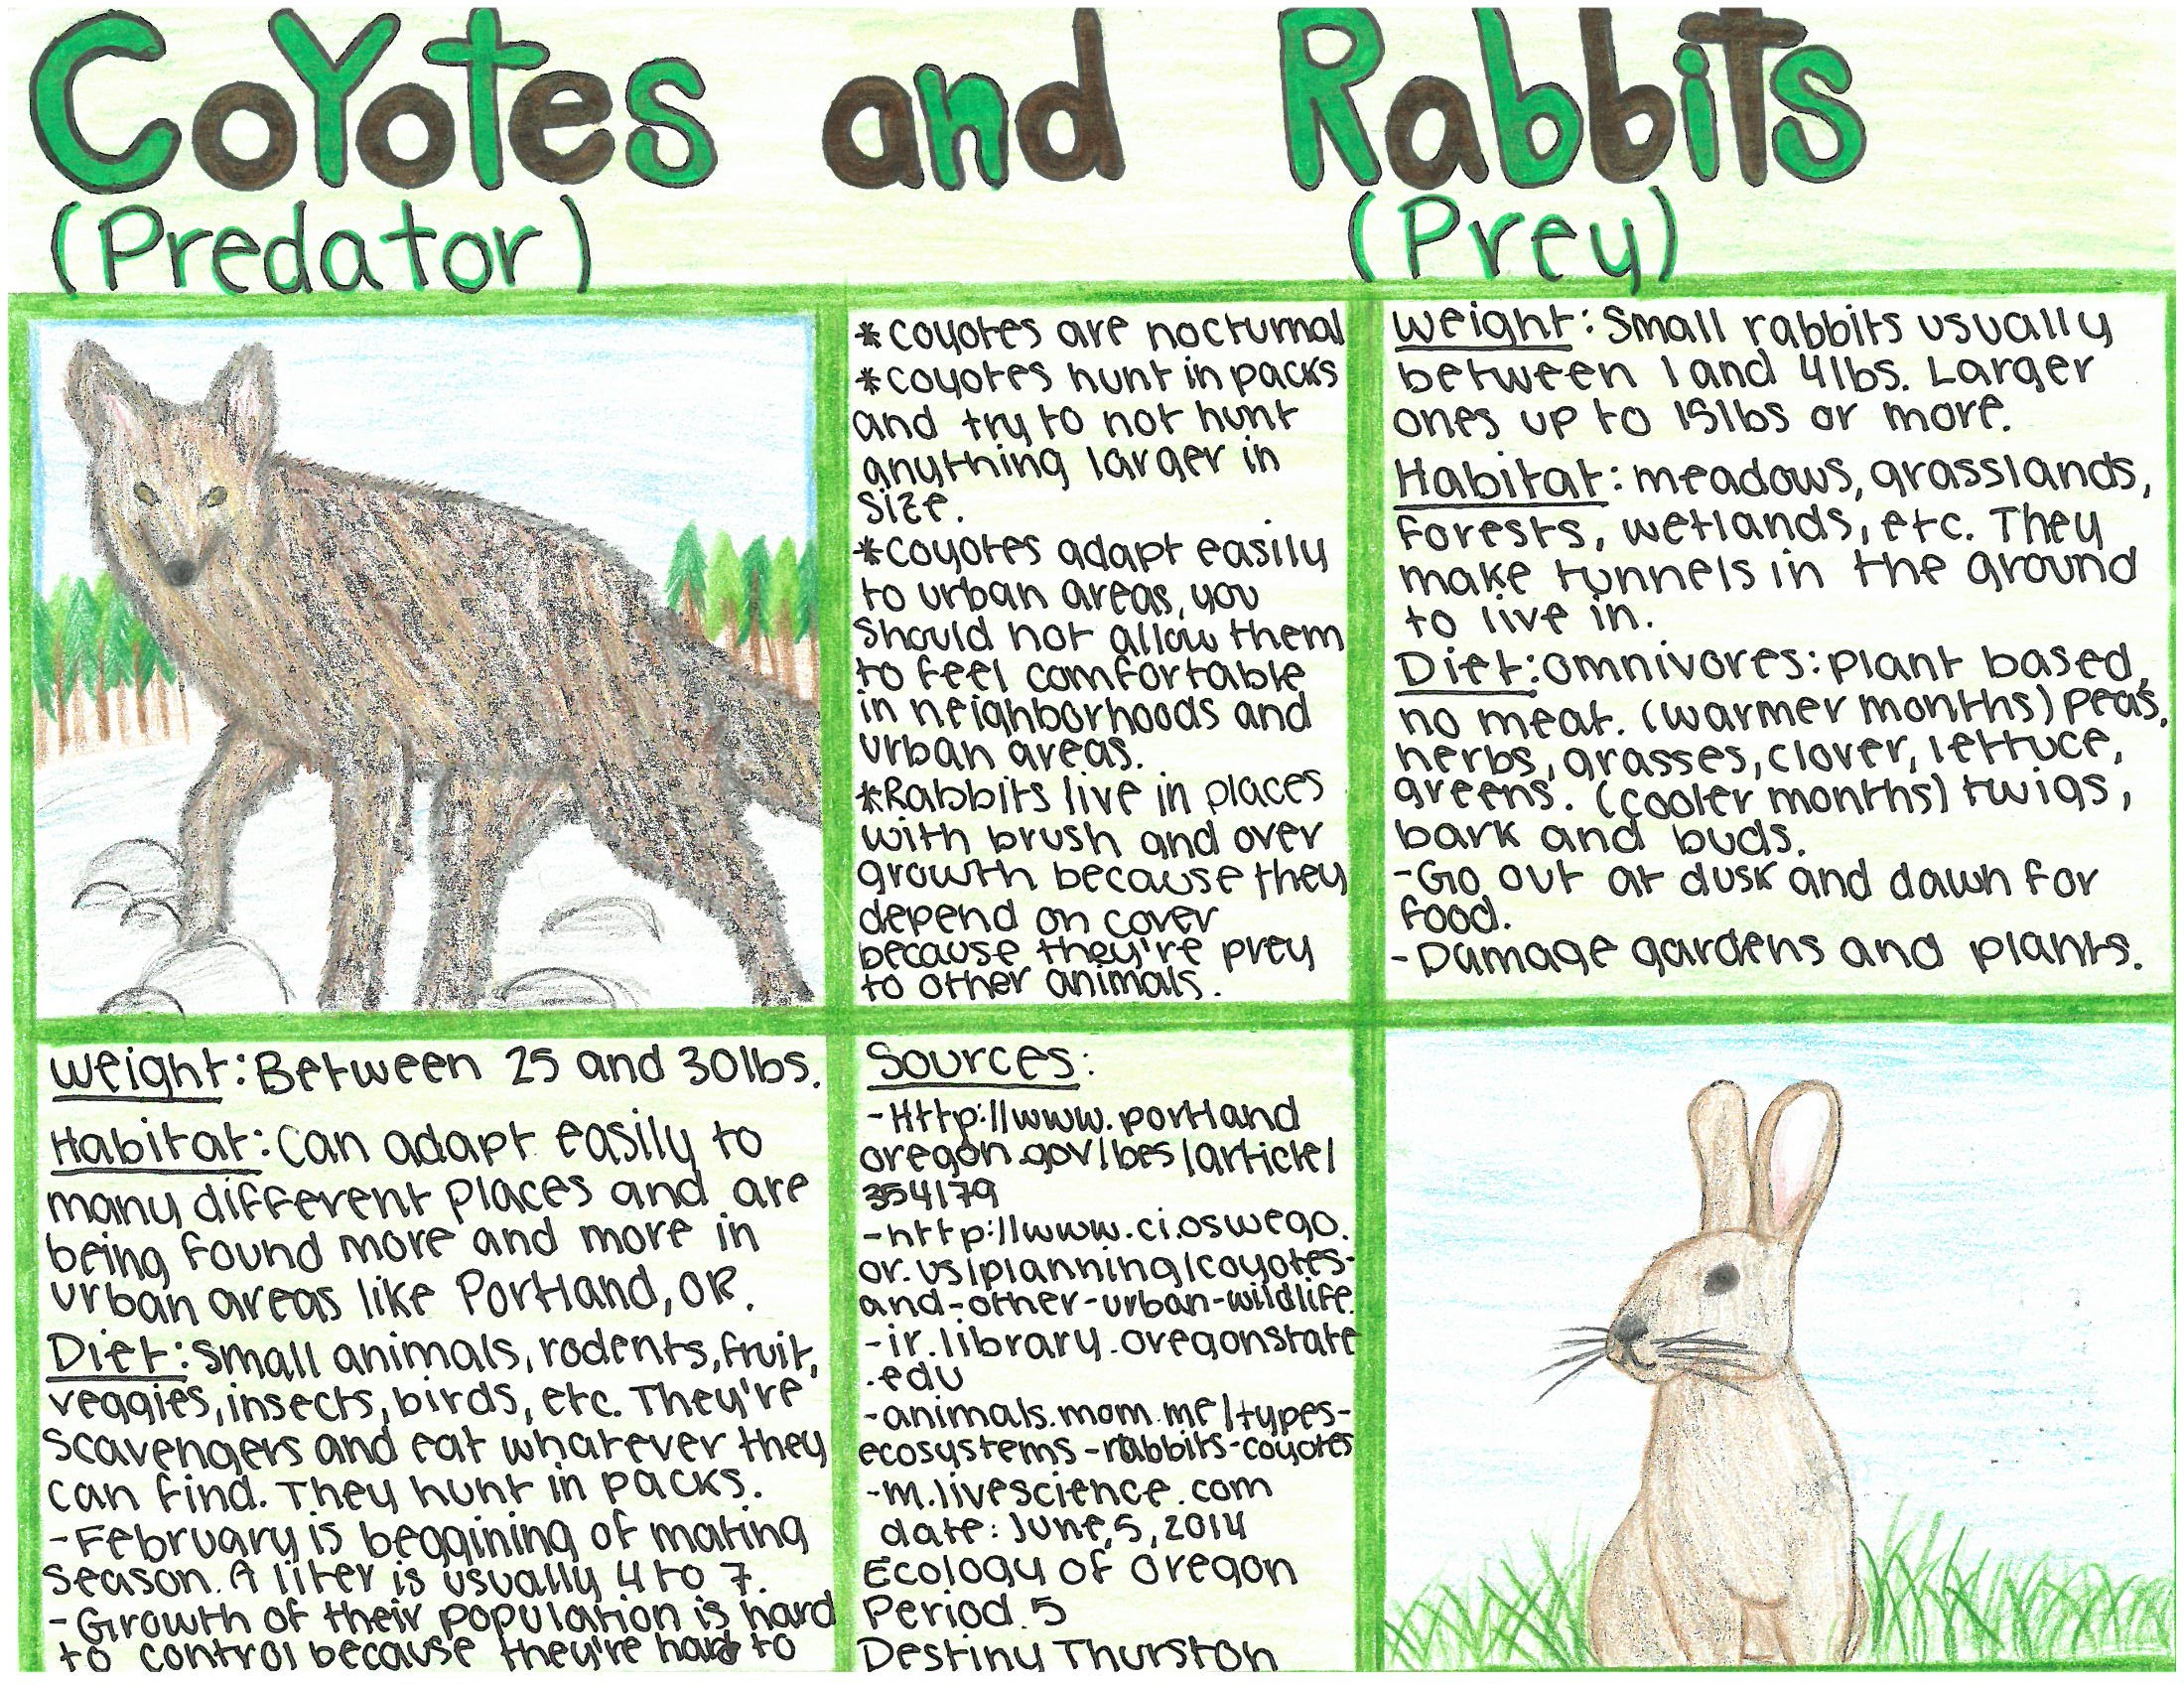 CoYotes and Rabbits
(Predator) (Prey)
*coyotes are nocturnal
*coyotes hunt in packs
and try to not hunt
anything larger in
size.
*coyotes adapt easily
to urban areas, you
should not allow them
to feel comfortable
in neighborhoods and
urban areas.
*Rabbits live in places
with brush and over
growth because they
depend on cover
because they're prey
to other animals.
Weight: Small rabbits usually
between 1 and 4lbs. Larger
ones up to 15lbs or more.
Habitat: meadows, grasslands,
forests, wetlands, etc. They
make tunnels in the ground
to live in.
Diet: omnivores: plant based,
no meat. (warmer months) peas,
herbs, grasses, clover, lettuce,
greens. (cooler months) twigs,
bark and buds.
-Go out at dusk and dawn for
food.
-Damage gardens and plants.
Weight: Between 25 and 30lbs.
Habitat: Can adapt easily to
many different places and are
being found more and more in
urban areas like Portland, OR.
Diet: small animals, rodents, fruit,
veggies, insects, birds, etc. They're
scavengers and eat whatever they
can find. They hunt in packs.
-February is beggining of mating
season. A liter is usually 4 to 7.
-Growth of their population is hard
to control because they're hard to
Sources:
-Http://www.portland
oregon.gov/bes/article/
354179
-http://www.ci.oswego.
or.us/planning/coyotes-
and-other-urban-wildlife.
-ir.library.oregonstate
.edu
-animals.mom.me/types-
ecosystems-rabbits-coyotes
-m.livescience.com
date: June, 5, 2014
Ecology of Oregon
Period. 5
Destiny Thurston